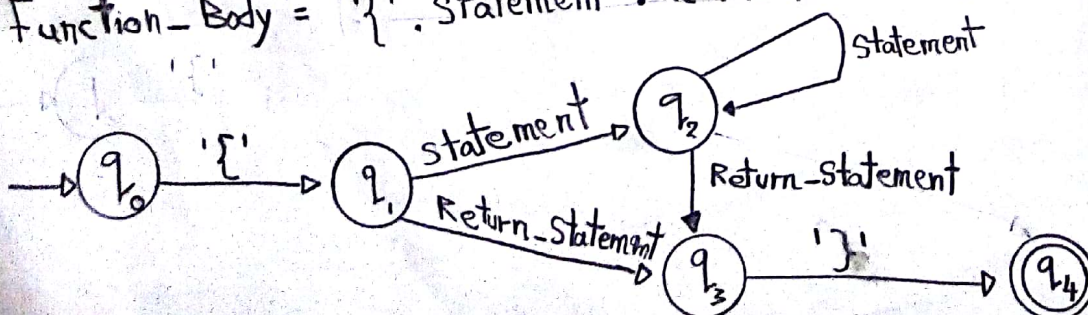 Function_Body = '{' . Statement
Statement
q₀ '{' q₁ statement q₂
Return_Statement
Return_Statement
q₃ '}' q₄